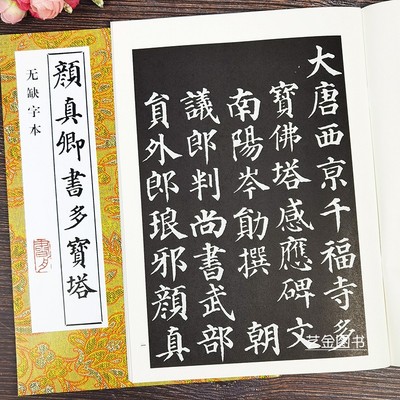 顔真卿書多寶塔
无缺字本
大唐西京千福寺多
寶佛塔感應碑文
南陽岑勛撰 朝
議郎判尚書武部
員外郎琅邪顔真
艺金图书